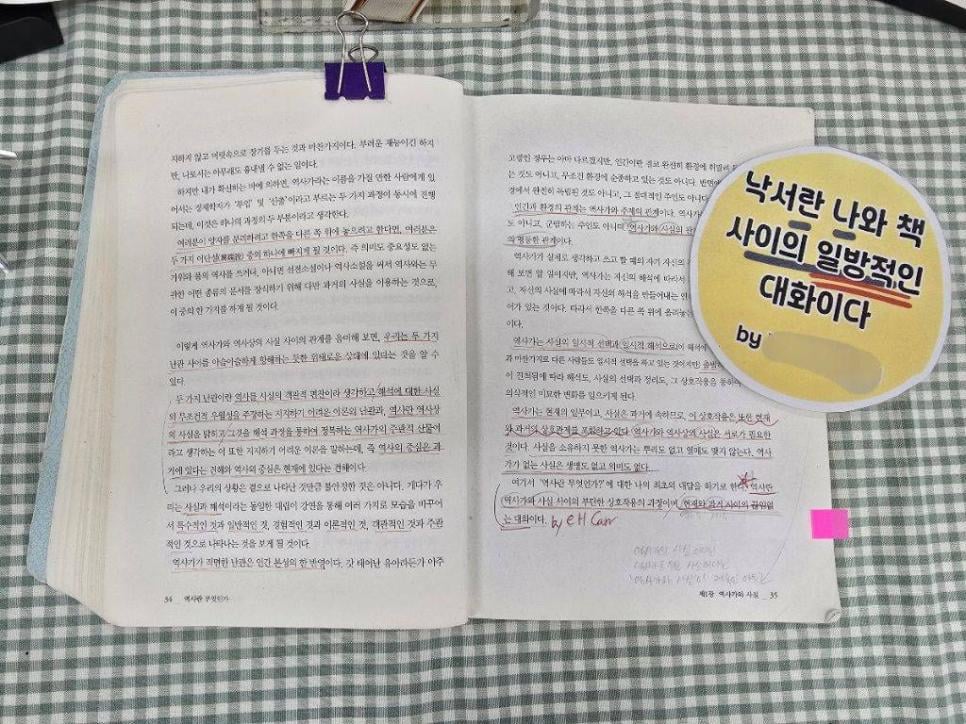 지하지 않고 머릿속으로 장기를 두는 것과 마찬가지이다. 부러운 재능이긴 하지
만, 나로서는 아무래도 흉내낼 수 없는 일이다.
하지만 내가 확신하는 바에 의하면, 역사가라는 이름을 가질 만한 사람에게 있
어서는 경제학자가 '투입' 및 '산출'이라고 부르는 두 가지 과정이 동시에 진행
되는데, 이것은 하나의 과정의 두 부분이라고 생각한다.
여러분이 양자를 분리하려고 한쪽을 다른 쪽 위에 놓으려고 한다면, 여러분은
두 가지 이단설(異端說) 중의 하나에 빠지게 될 것이다. 즉 의미도 중요성도 없는
가위와 풀의 역사를 쓰거나, 아니면 선전소설이나 역사소설을 써서 역사와는 무
관한 어떤 종류의 문서를 장식하기 위해 다만 과거의 사실을 이용하는 것으로,
이 중의 한 가지를 하게 될 것이다.
이렇게 역사가와 역사상의 사실 사이의 관계를 음미해 보면, 우리는 두 가지
난관 사이를 아슬아슬하게 항해하는 듯한 위태로운 상태에 있다는 것을 알 수
있다.
두 가지 난관이란 역사를 사실의 객관적 편찬이라 생각하고, 해석에 대한 사실
의 무조건적 우월성을 주장하는 지지하기 어려운 이론의 난관과, 역사란 역사상
의 사실을 밝히고 그것을 해석 과정을 통하여 정복하는 역사가의 주관적 산물이
라고 생각하는 이 또한 지지하기 어려운 이론을 말하는데, 즉 역사의 중심은 과
거에 있다는 견해와 역사의 중심은 현재에 있다는 견해이다.
그러나 우리의 상황은 겉으로 나타난 것만큼 불안정한 것은 아니다. 게다가 우
리는 사실과 해석이라는 동일한 대립이 강연을 통해 여러 가지로 모습을 바꾸어
서 특수적인 것과 일반적인 것, 경험적인 것과 이론적인 것, 객관적인 것과 주관
적인 것으로 나타나는 것을 보게 될 것이다.
역사가가 직면한 난관은 인간 본성의 한 반영이다. 갓 태어난 유아라든가 아주
34 _ 역사란 무엇인가
고령인 경우는 아마 다르겠지만, 인간이란 결코 완전히 환경에 휘말려
는 것도 아니고, 무조건 환경에 순종하고 있는 것도 아니다. 반면에
경에서 완전히 독립된 것도 아니고, 그 절대적인 주인도 아니다
인간과 환경의 관계는 역사가와 주제의 관계이다. 역사가
도 아니고, 군림하는 주인도 아니며, 역사가와 사실의 관
의 평등한 관계이다.
역사가가 실제로 생각하고 쓰고 할 때의 자기 자신의
해 보면 알 일이지만, 역사가는 자신의 해석에 따라서
고, 자신의 사실에 따라서 자신의 해석을 만들어내는
어가 있는 것이다. 따라서 한쪽을 다른 쪽 위에 올려놓는
이다.
역사가는 사실의 일시적 선택과 일시적 해석으로
과 마찬가지로 다른 사람들도 일시적 선택을 하고 있는 것이지만
이 진척됨에 따라 해석도, 사실의 선택과 정리도, 그 상호작용을 통하여
의식적인 미묘한 변화를 일으키게 된다.
역사가는 현재의 일부이고, 사실은 과거에 속하므로, 이 상호작용은 또한 현재
와 과거의 상호관계를 포함하고 있다. 역사가와 역사상의 사실은 서로가 필요한
것이다. 사실을 소유하지 못한 역사가는 뿌리도 없고 열매도 맺지 않는다. 역사
가가 없는 사실은 생명도 없고 의미도 없다.
여기서 '역사란 무엇인가?'에 대한 나의 최초의 대답을 하기로 한다. 역사란
역사가와 사실 사이의 부단한 상호작용의 과정이며, 현재와 과거 사이의 끊임없
는 대화이다. by E H Carr
제1장 역사가와 사실 _ 35
낙서란 나와 책
사이의 일방적인
대화이다
by